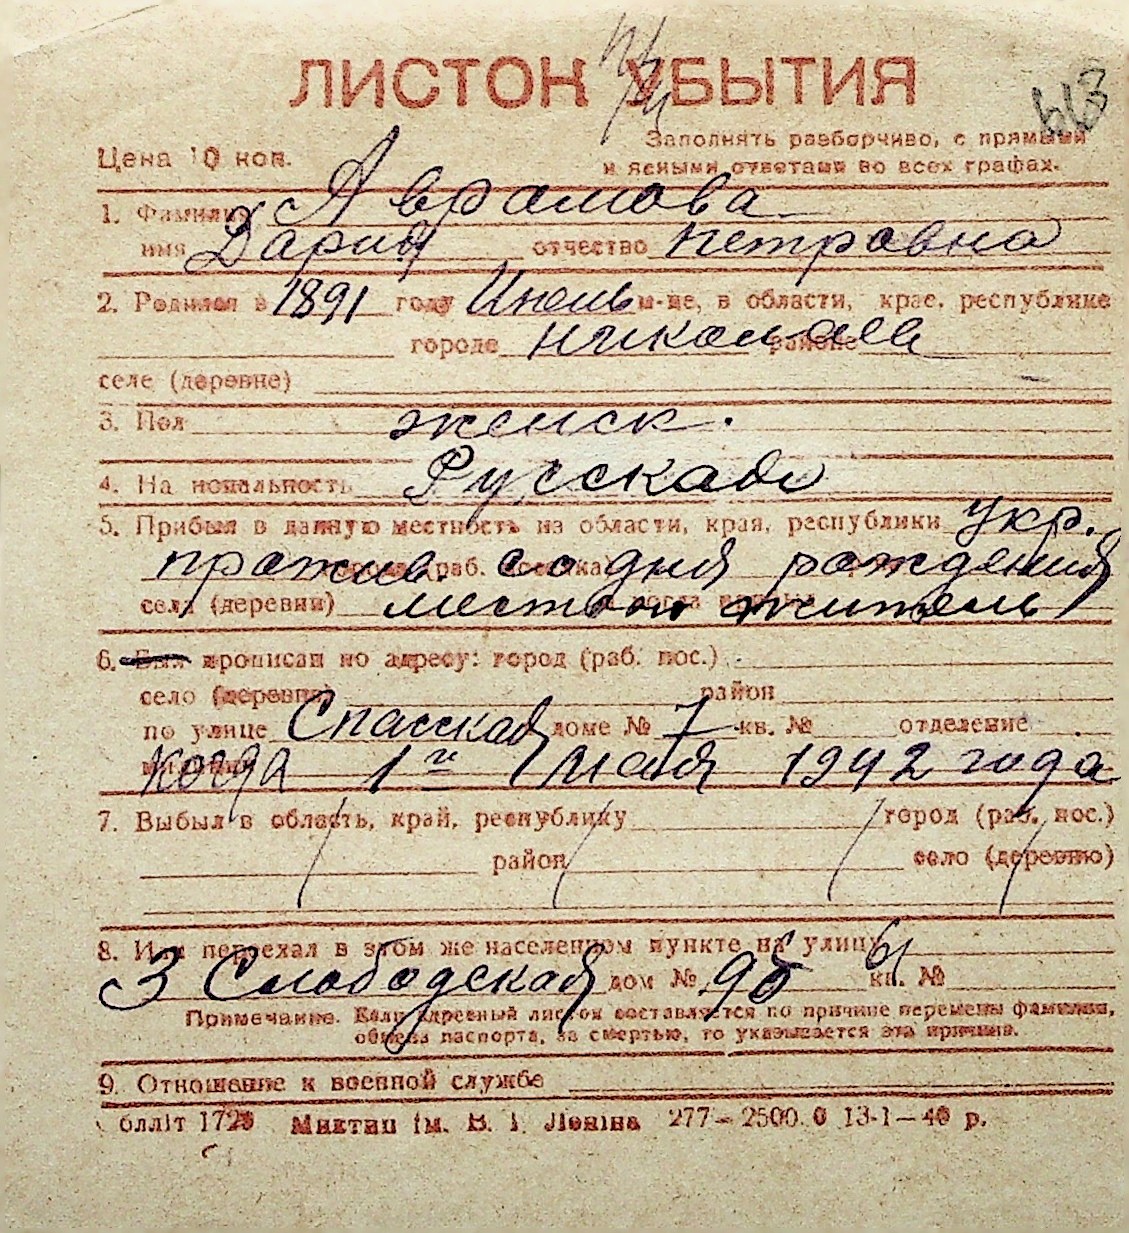 ЛИСТОК УБЫТИЯ
при
663
Цена 10 коп.
Заполнять разборчиво, с прямыми
и ясными ответами во всех графах.
1. Фамилия Аврамова
имя Дария отчество Петровна
2. Родился в 1891 году Июль м-це, в области, крае, республике
городе Николаев районе
селе (деревне)
3. Пол женск.
4. Национальность Русская
5. Прибыл в данную местность из области, края, республики Укр.
прожив. со дня рождения
села (деревни) местной житель
6. Был прописан по адресу: город (раб. пос.)
село (деревня) район
по улице Спасская доме № 7 кв. № отделение
Когда 1го мая 1942 года
7. Выбыл в область, край, республику город (раб. пос.)
район село (деревню)
8. Или переехал в этом же населенном пункте на улицу
3 Слободская дом № 96 кв. №
Примечание. Если адресный листок составляется по причине перемены фамилии,
обмена паспорта, за смертью, то указывается эта причина.
9. Отношение к военной службе
блліт 1728 Миктип ім. В. І. Леніна 277—2500.0 13-1—40 р.